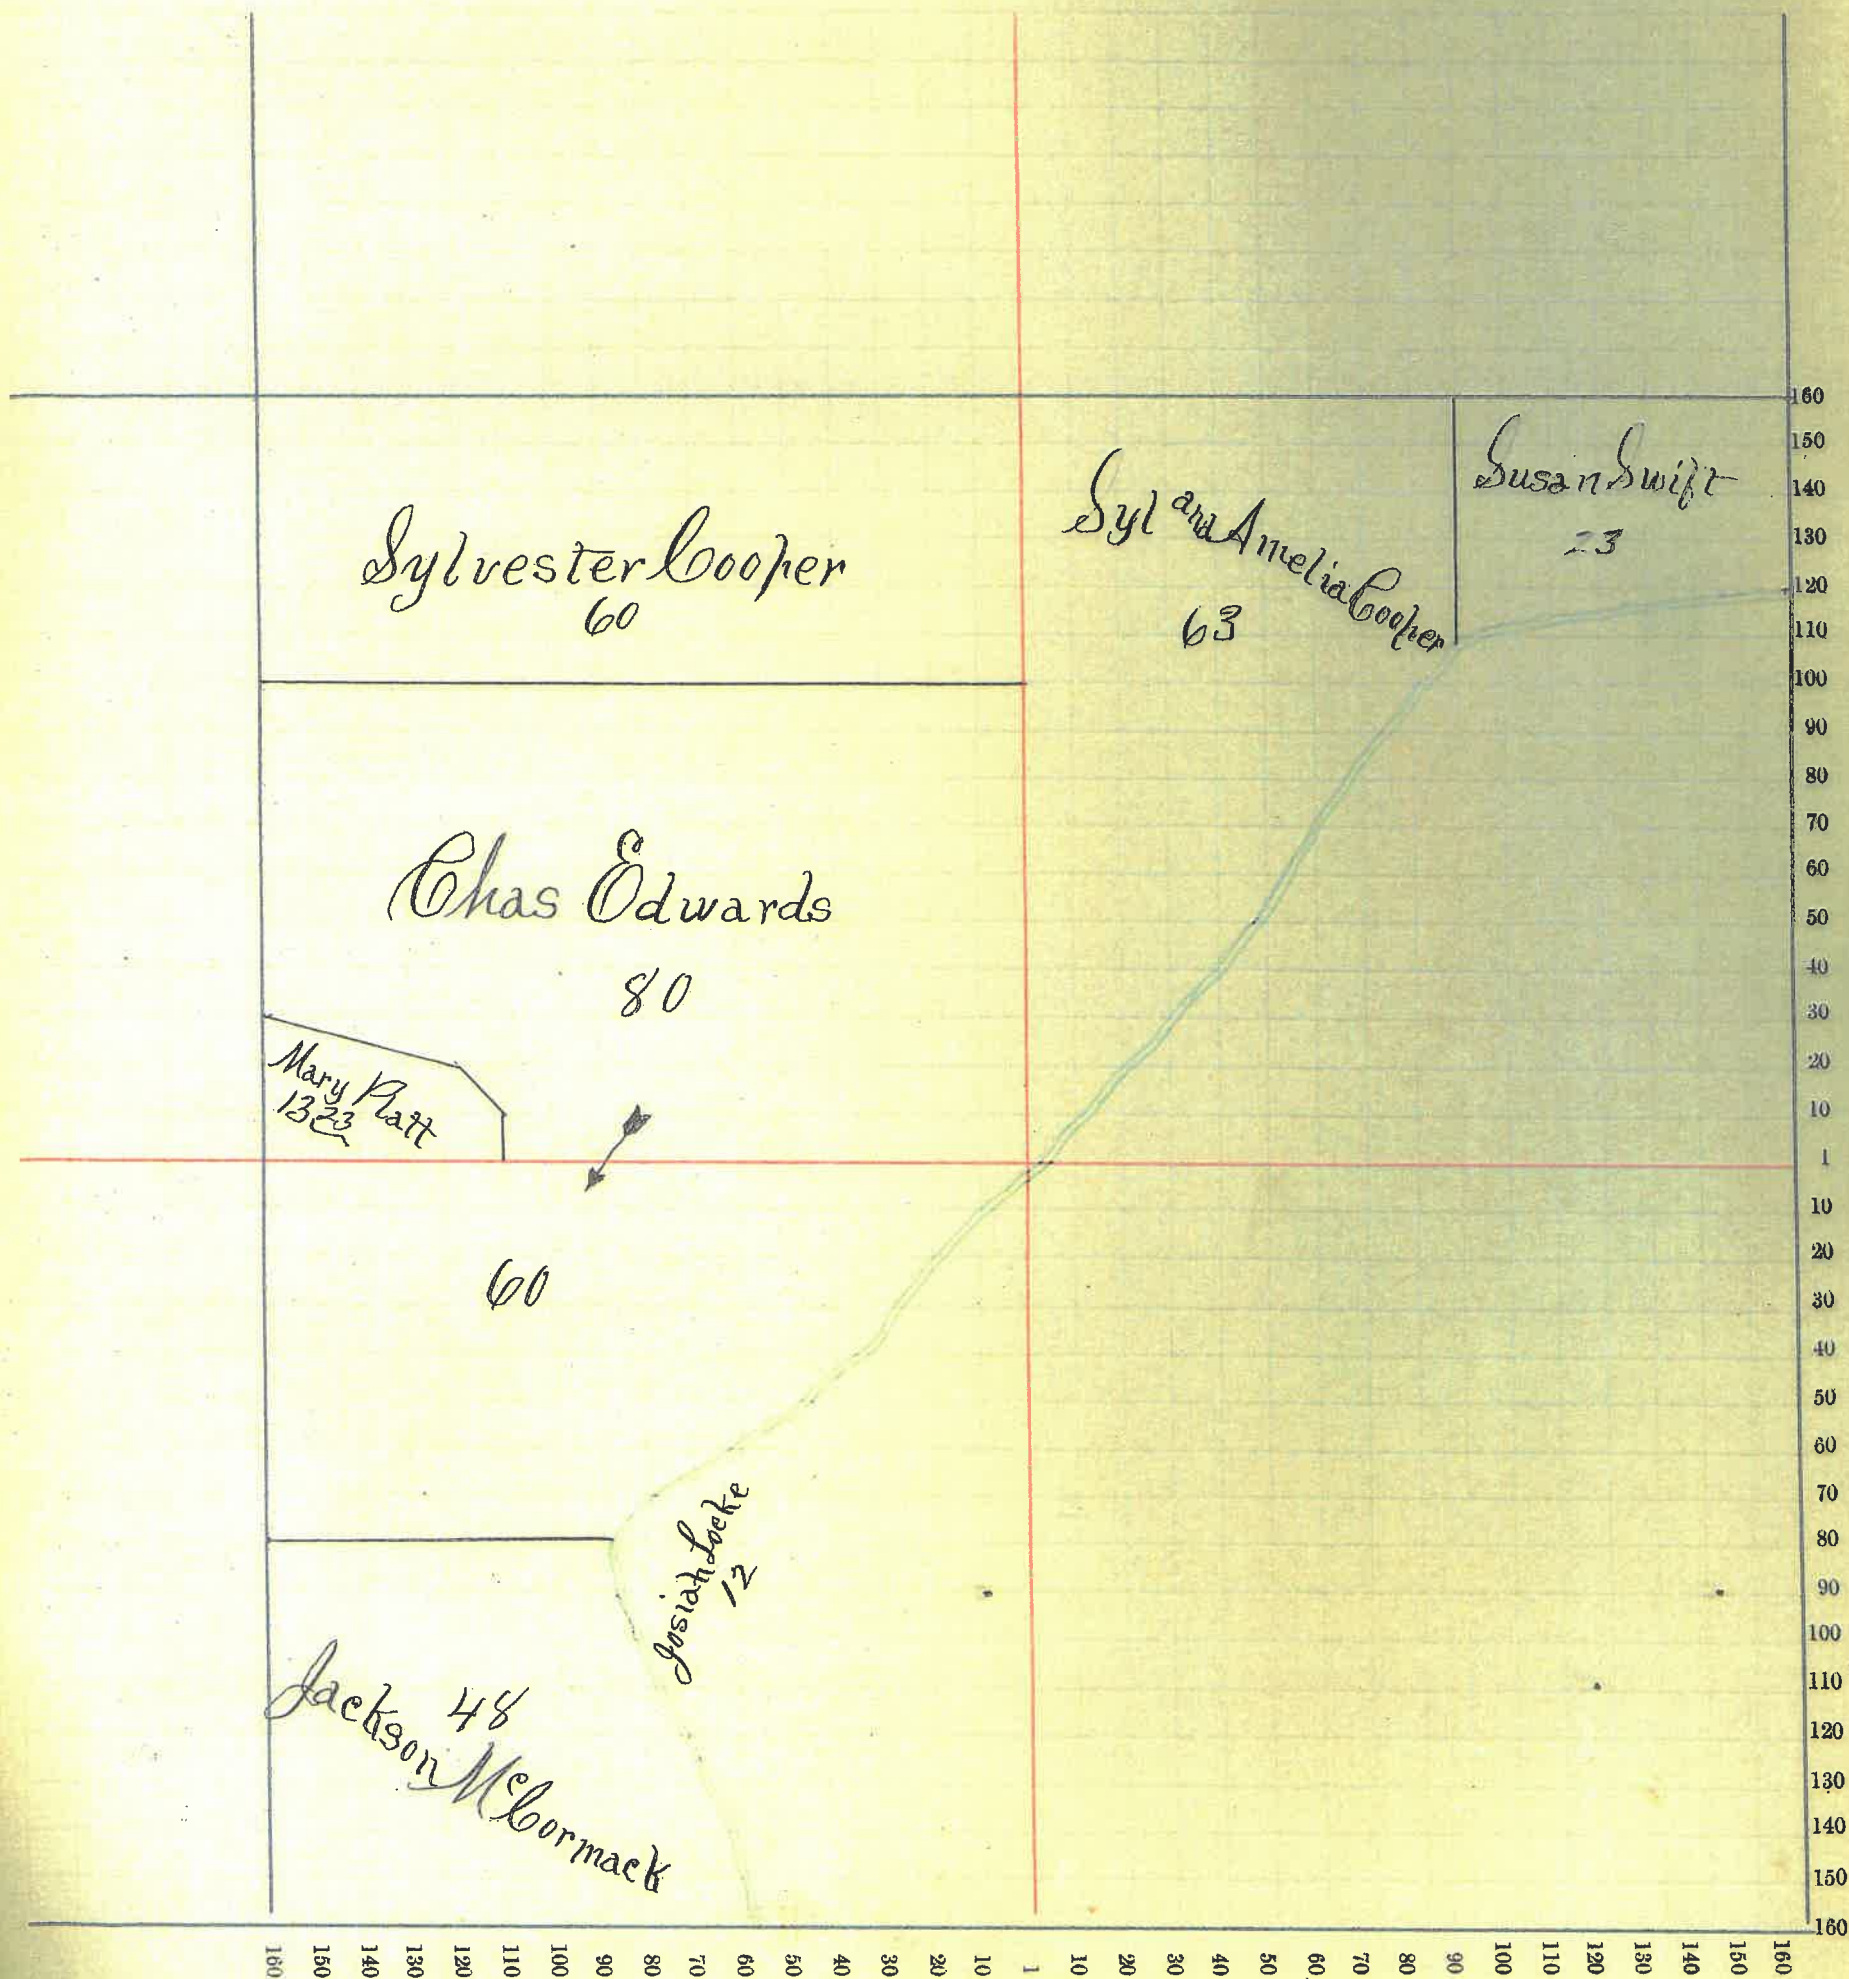 Sylvester Cooper
60
Syl and Amelia Cooper
63
Susan Swift
23
Chas Edwards
80
Mary Platt
13 23
60
Josiah Locke
12
Jackson McCormack
48
160
150
140
130
120
110
100
90
80
70
60
50
40
30
20
10
1
10
20
30
40
50
60
70
80
90
100
110
120
130
140
150
160
160 150 140 130 120 110 100 90 80 70 60 50 40 30 20 10 1 10 20 30 40 50 60 70 80 90 100 110 120 130 140 150 160